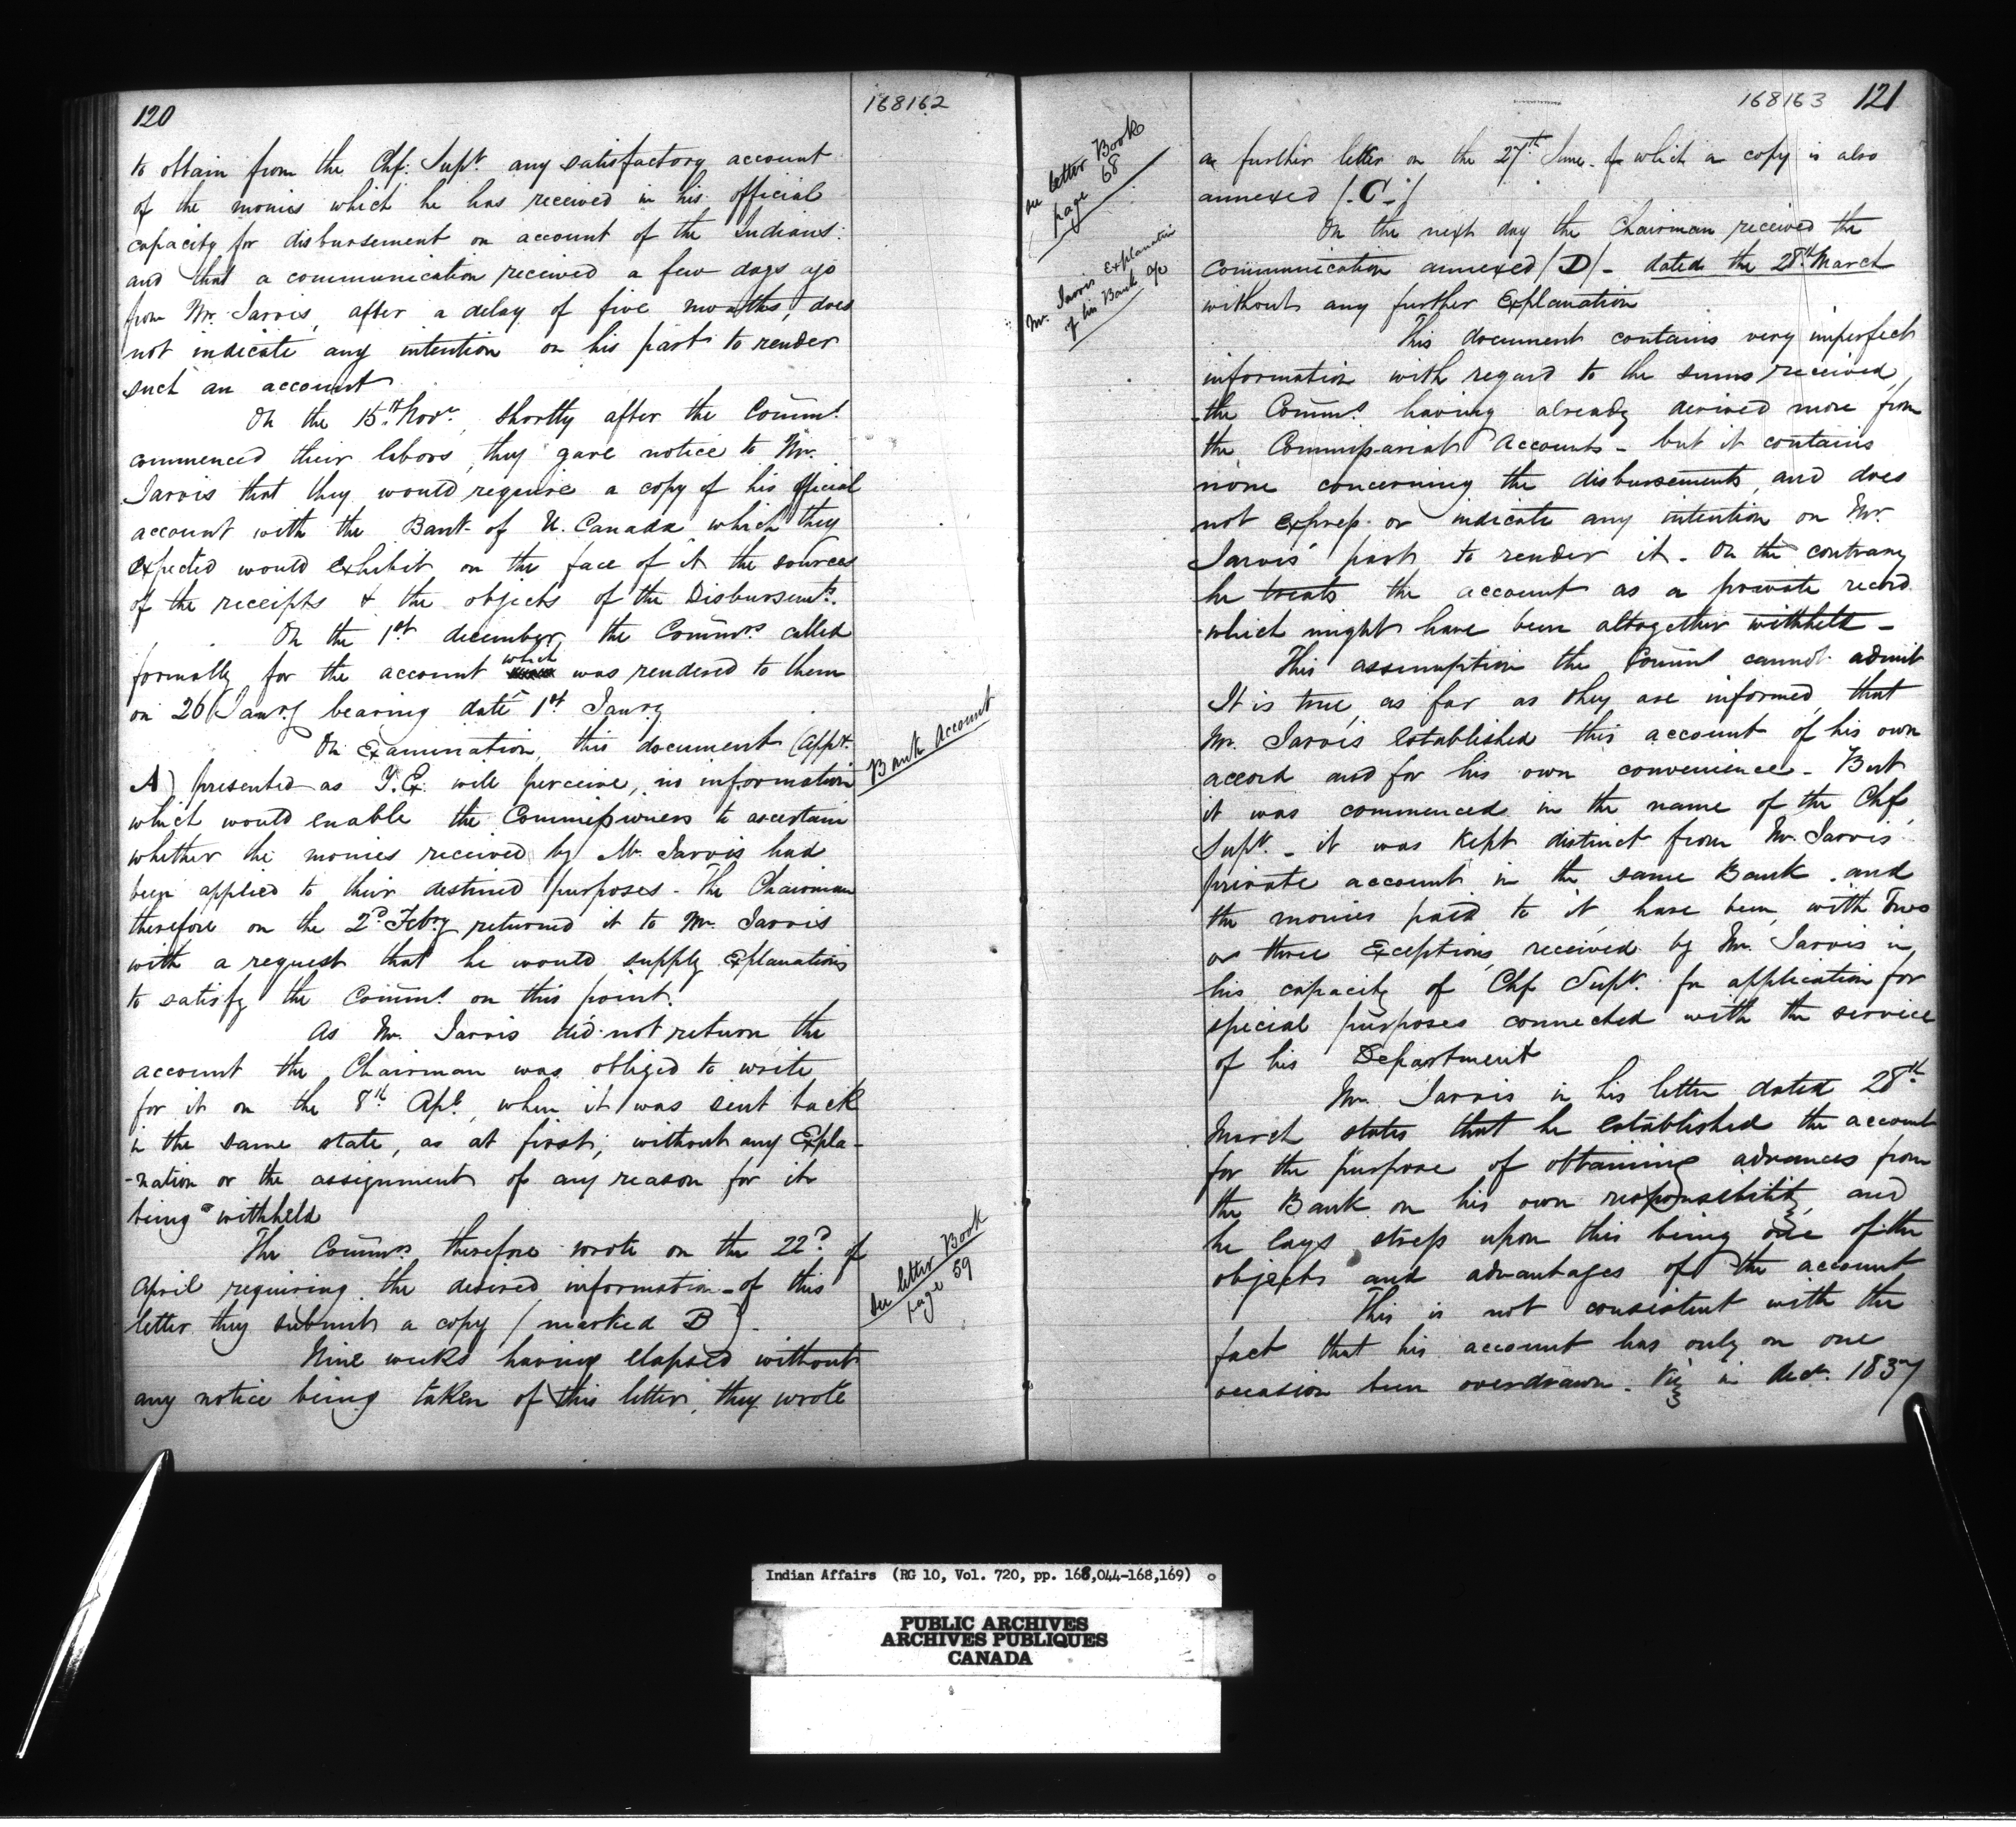 120
168162
to obtain from the Chf. Supt. any satisfactory account
of the monies which he has received in his official
capacity for disbursement on account of the Indians:
and that a communication received a few days ago
from Mr. Jarvis, after a delay of five months, does
not indicate any intention on his part to render
such an account
On the 15th Novr., shortly after the Commrs.
commenced their labors, they gave notice to Mr.
Jarvis that they would require a copy of his official
account with the Bank of U. Canada which they
expected would exhibit on the face of it the sources
of the receipts & the objects of the Disbursemts.
On the 1st december, the Commrs called
formally for the account which was rendered to them
on 26 Janry bearing date 1st Janry
On Examination, this document (Appx.
A) presented as Y. E. will perceive, no information
which would enable the Commissioners to ascertain
whether the monies received by Mr. Jarvis had
been applied to their destined purposes - The Chairman
therefore on the 2d. Febry returned it to Mr. Jarvis
with a request that he would supply Explanations
to satisfy the Commrs on this point.
As Mr. Jarvis did not return the
account the Chairman was obliged to write
for it on the 8th Apl., when it was sent back
in the same state, as at first, without any Expla-
-nation or the assignment of any reason for its
being withheld
The Commrs. therefore wrote on the 22d. of
April requiring the desired information - of this
letter they submit a copy (marked B).
Nine weeks having elapsed without
any notice being taken of this letter, they wrote
Bank Account
See letter Book
page 59
168163 121
see letter Book
page 68
Mr. Jarvis Explanation
of his Bank a/c
a further letter on the 27th June - of which a copy is also
annexed /-C-/
On the next day the Chairman received the
communication annexed /D/ - dated the 28th March
without any further Explanation
This document contains very imperfect
information with regard to the sums received,
-the Commrs having already derived more from
the Commissariat Accounts - but it contains
none concerning the disbursements, and does
not express or indicate any intention on Mr.
Jarvis' part to render it - On the contrary
he treats the account as a private record
which might have been altogether withheld -
This assumption the Commrs cannot admit
It is true, as far as they are informed, that
Mr. Jarvis established this account of his own
accord and for his own convenience - But
it was commenced in the name of the Chf
Supt. - it was kept distinct from Mr. Jarvis
private account in the same Bank, and
the monies paid to it have been, with two
or three Exceptions, received by Mr. Jarvis in
his capacity of Chf Supt. for application for
special purposes connected with the service
of his Department
Mr. Jarvis in his letter dated 28th
March states that he established the account
for the purpose of obtaining advances from
the Bank on his own responsibility, and
he lays stress upon this being one of the
objects and advantages of the account
This is not consistent with the
fact that his account has only on one
occasion been overdrawn. Viz in Decr. 1837
Indian Affairs (RG 10, Vol. 720, pp. 168,044-168,169)
PUBLIC ARCHIVES
ARCHIVES PUBLIQUES
CANADA